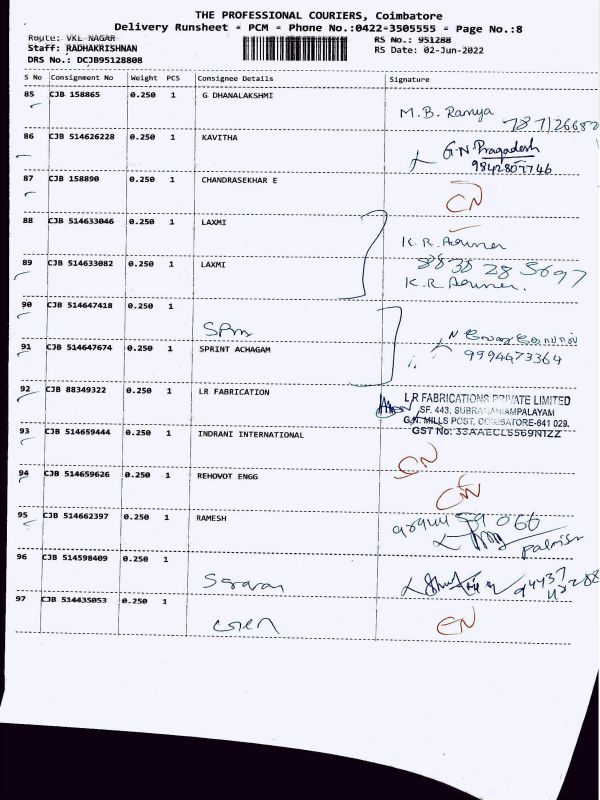 THE PROFESSIONAL COURIERS, Coimbatore
Delivery Runsheet - PCM - Phone No.:0422-3505555 - Page No.:8
Route: VKL NAGAR RS No.: 951288
Staff: RADHAKRISHNAN RS Date: 02-Jun-2022
DRS No.: DCJB95128808
S No Consignment No Weight PCS Consignee Details Signature
85 CJB 158865 0.250 1 G DHANALAKSHMI
M.B. Ramya
86 CJB 514626228 0.250 1 KAVITHA G.N. Pragadesh
9842807746
87 CJB 158890 0.250 1 CHANDRASEKHAR E
CN
88 CJB 514633046 0.250 1 LAXMI
K.R.
89 CJB 514633082 0.250 1 LAXMI 8838 28 5697
K.R.
90 CJB 514647418 0.250 1
SPM
91 CJB 514647674 0.250 1 SPRINT ACHAGAM 9994473364
92 CJB 88349322 0.250 1 LR FABRICATION LR FABRICATIONS PRIVATE LIMITED
SF. 443, SUBRAMANIAMPALAYAM
G.N. MILLS POST, COIMBATORE-641 029.
93 CJB 514659444 0.250 1 INDRANI INTERNATIONAL GST No:
CN
94 CJB 514659626 0.250 1 REHOVOT ENGG
CN
95 CJB 514662397 0.250 1 RAMESH
96 CJB 514598409 0.250 1
97 CJB 514435053 0.250 1